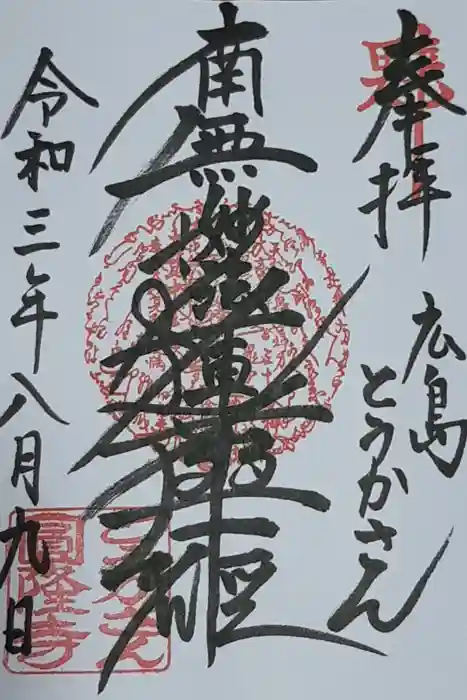 奉拝
広島
とうかさん
南無妙法蓮華経
令和三年八月九日
とうかさん
圓隆寺